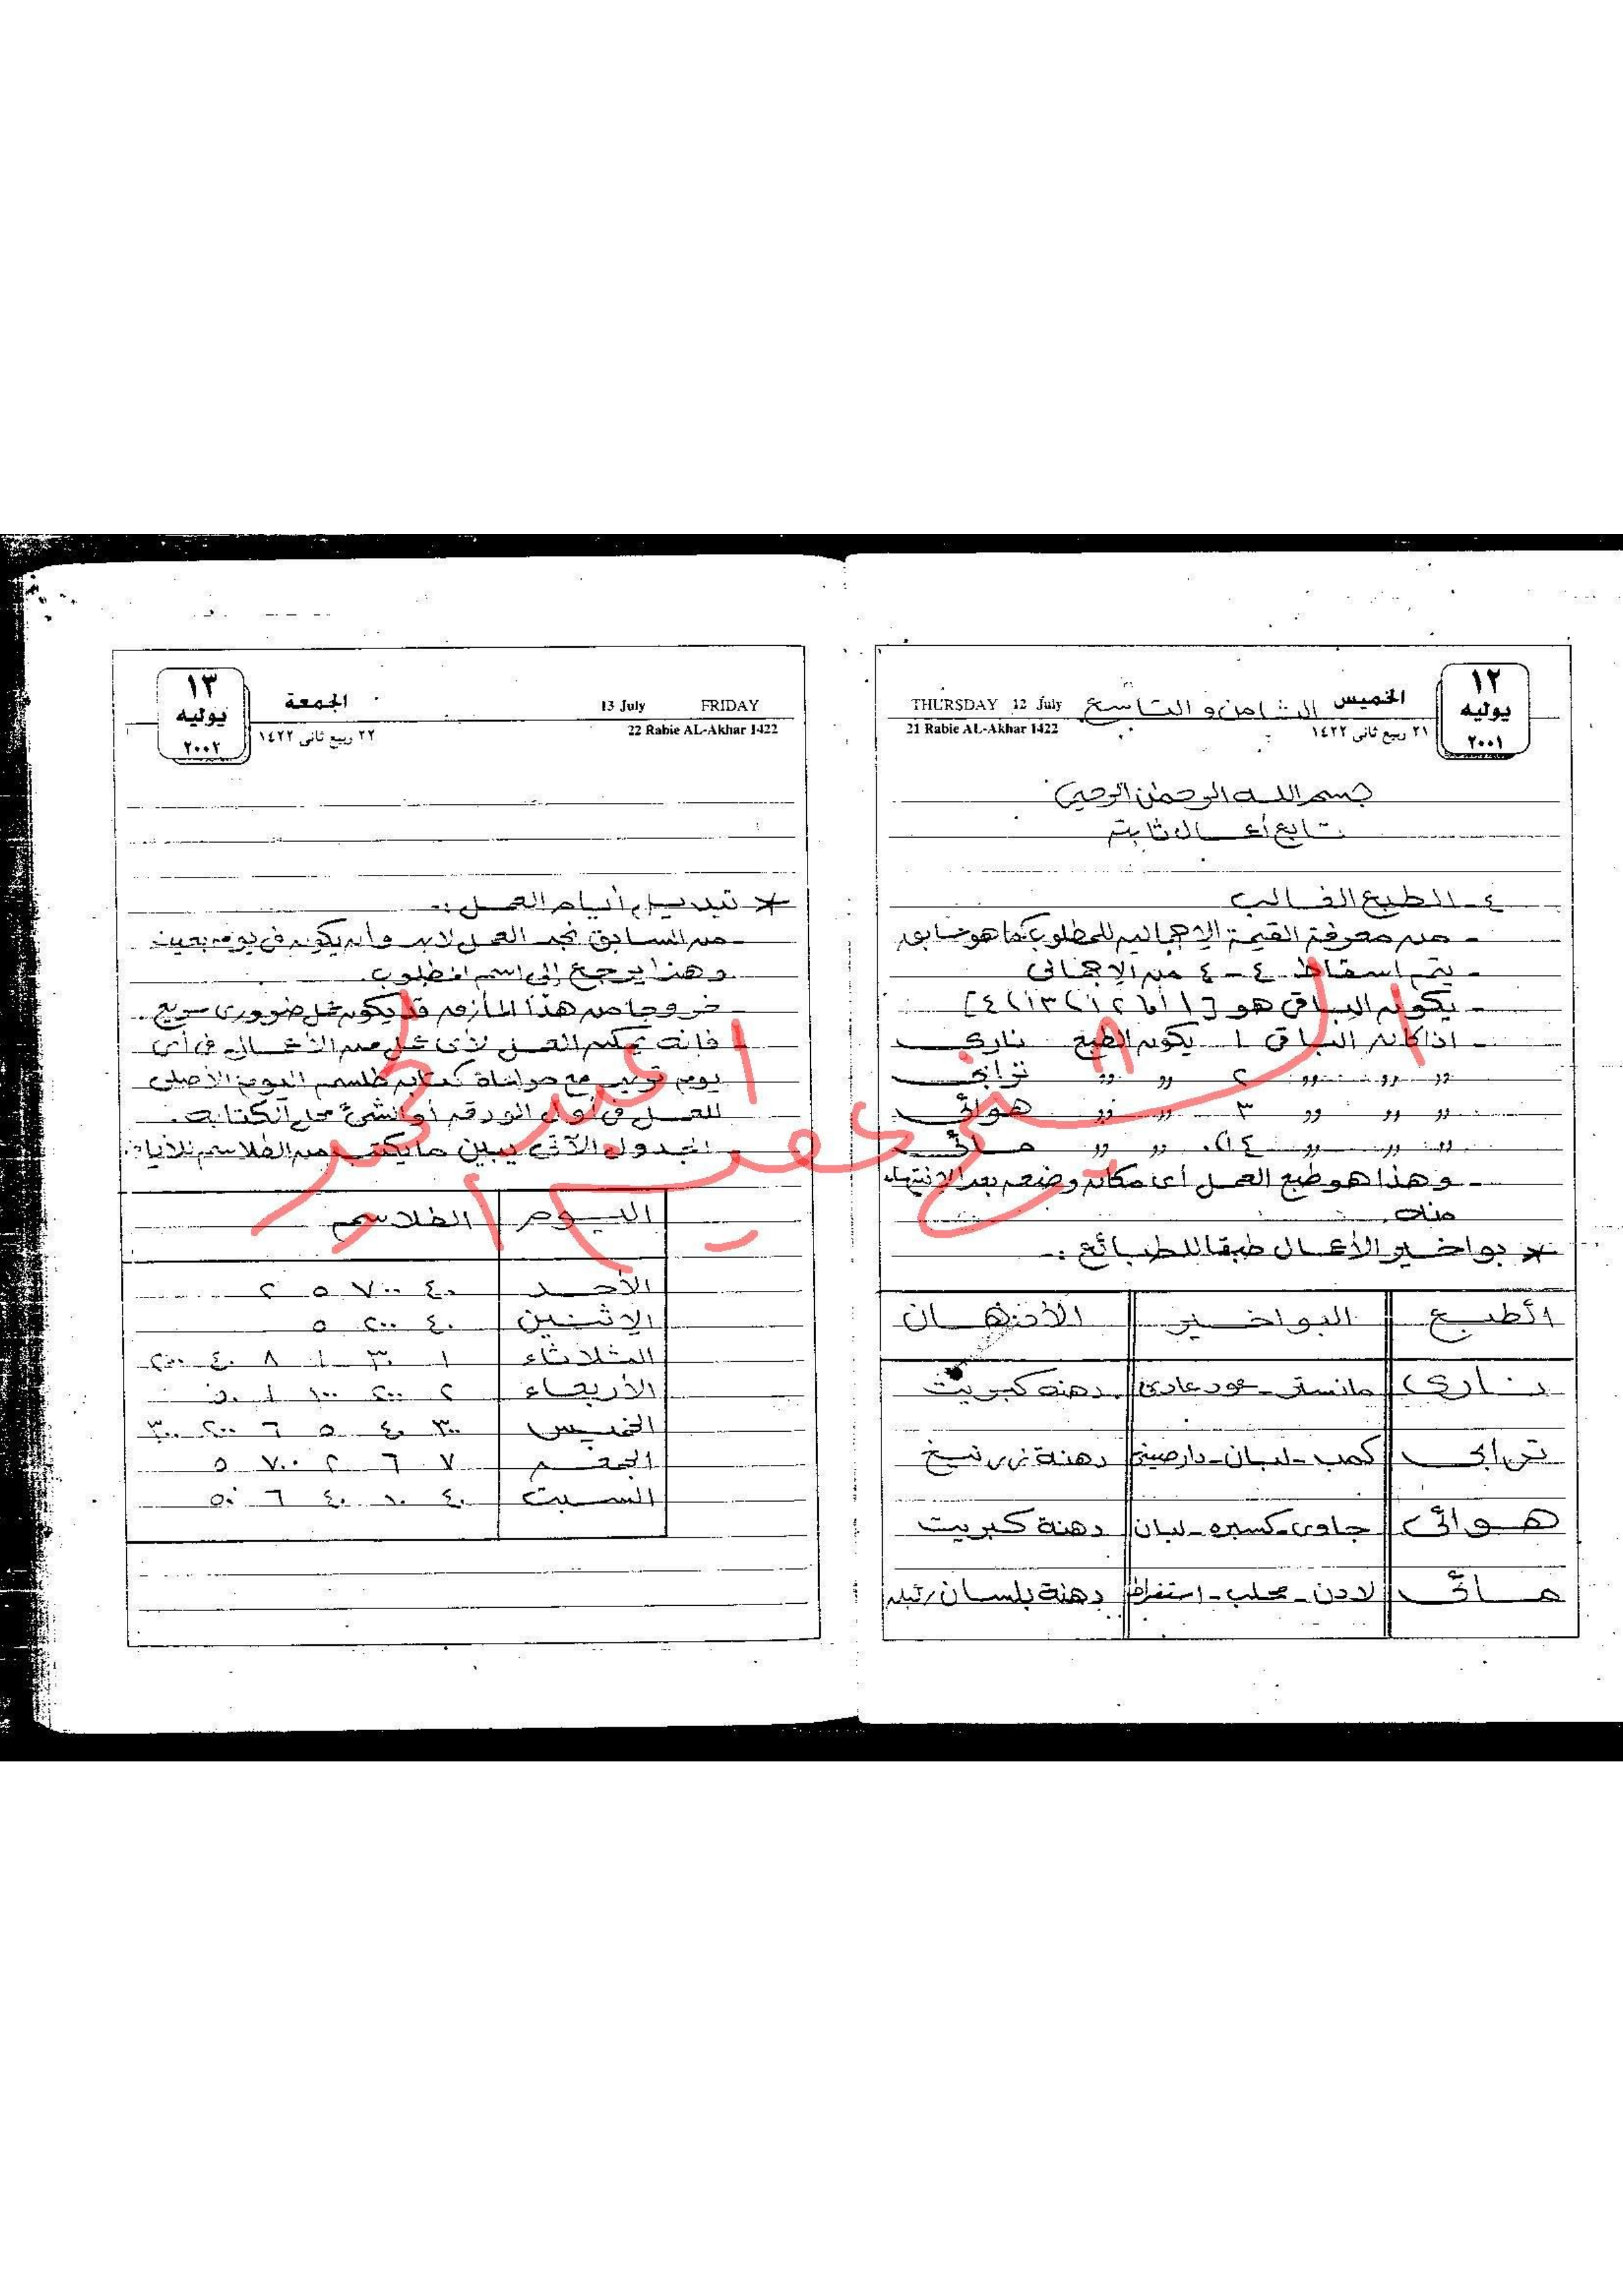 ١٢
يوليه
٢٠٠١
الخميس الثامن والتاسع THURSDAY 12 July
٢١ ربيع ثانى ١٤٢٢ 21 Rabie AL-Akhar 1422
بسم الله الرحمن الرحيم
تابع أعمال ثابتة
٤- الطبع الغالب
- من معرفة القيمة الإجمالية للمطلوب كما هو سابق
- يتم اسقاط ٤-٤ من الإجمالى
- يكون الباقى هو [١ أ، ٢ أ، ٣ أ، ٤]
- اذا كان الباقى ١ يكون الطبع نارى
" " " ٢ " " ترابى
" " " ٣ " " هوائى
" " " ٤ " " مائى
- وهذا هو طبع العمل أى مكان وضعه بعد الإنتهاء
منه.
* بواخير الأعمال طبقا للطبائع :-
الطبع البواخير الأدهان
نارى مانستر - عود عادى دهنة كبريت
ترابى لبان - دارصينى دهنة زرنيخ
هوائى جاوى - كسبره - لبان دهنة كبريت
مائى لادن - محلب - دهنة بلسان
١٣
يوليه
٢٠٠٢
الجمعة 13 July FRIDAY
٢٢ ربيع ثانى ١٤٢٢ 22 Rabie AL-Akhar 1422
* تبديل أيام العمل :-
- من السابق نجد العمل لابد وأن يكون فى يوم بعينه
وهذا يرجع إلى اسم المطلوب.
- خروجا من هذا المأزق قد يكون عمل ضرورى سريع.
- فإنه يمكن العمل لأى عمل من الأعمال فى أى
يوم تريد مع مراعاة كتابة طلسم اليوم الأصلى
للعمل فى أول الورقة أو الشئ محل الكتابة.
- الجدول الآتى يبين ما يكتب من الطلاسم للأيام
اليوم الطلاسم
الأحد ٤٠ ٧٠٠ ٥ ٢
الإثنين ٤٠ ٢٠٠ ٥
الثلاثاء ١ ٣٠ ١ ٨ ٤٠ ٢٠٠
الأربعاء ٢ ٢٠٠ ١٠٠ ١ ٥٠
الخميس ٣٠٠ ٤٠ ٥ ٦ ٢٠٠ ٣٠٠
الجمعة ٧ ٦ ٢ ٧٠٠ ٥
السبت ٤٠ ١٠ ٤٠ ٦ ٥٠